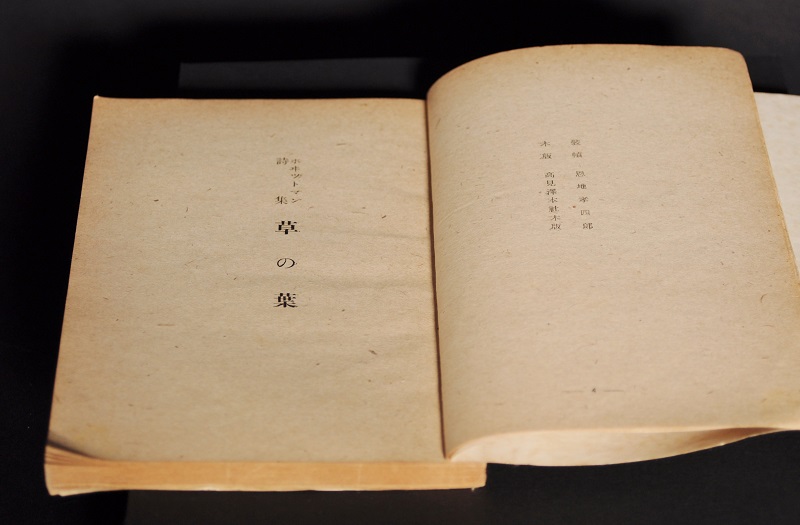 裝幀 恩地孝四郎
木版 高見澤木社木版
— 4 —
ホヰツトマン
詩集
草の葉